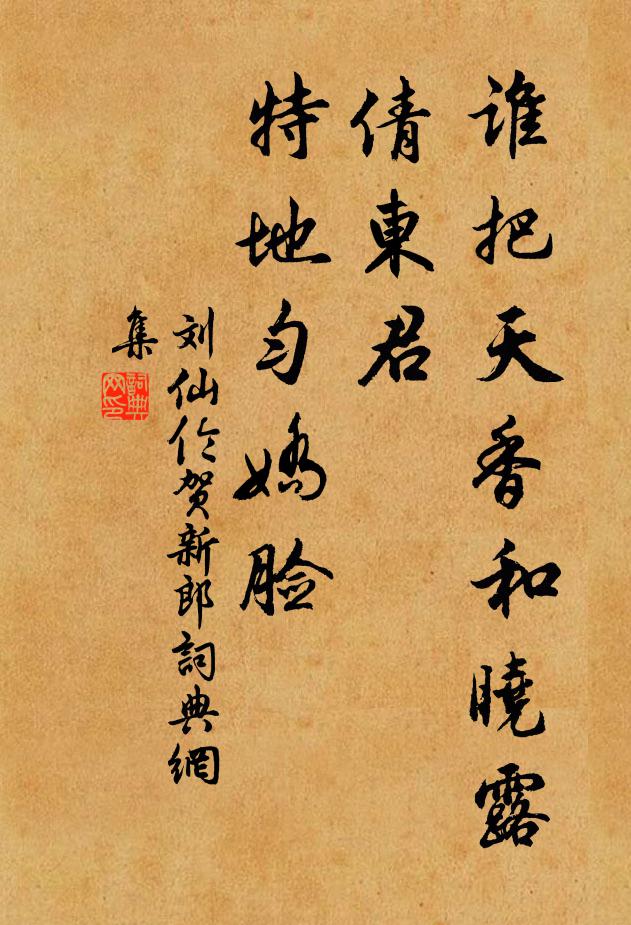 谁把天香和曉露
倩東君
特地匀嬌脸
刘仙伦贺新郎詞典網
集
詞典
网印